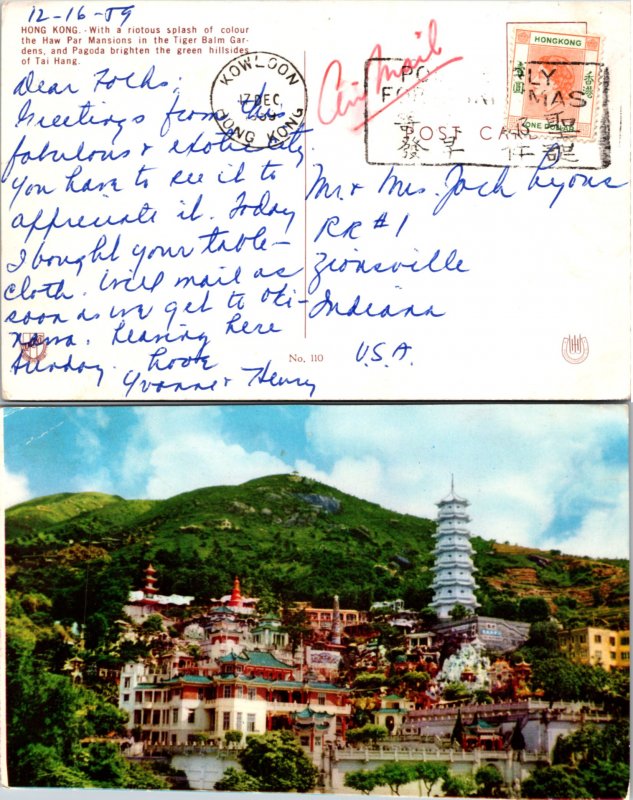 12-16-59
HONG KONG. - With a riotous splash of colour
the Haw Par Mansions in the Tiger Balm Gar-
dens, and Pagoda brighten the green hillsides
of Tai Hang.
Dear Folks:
Greetings from this
fabulous & exotic city.
You have to see it to
appreciate it. Today
I bought your table-
cloth. Will mail as
soon as we get to Oki-
nawa. Leaving here
Sunday. Love
Yvonne & Henry
KOWLOON
17 DEC
HONG KONG
Air Mail
PO LY
FO MAS
POST CARD
發 早
HONGKONG
香港
壹圓
ONE DOLLAR
Mr & Mrs. Jack Lyons
RR #1
Zionsville
Indiana
U.S.A.
No. 110